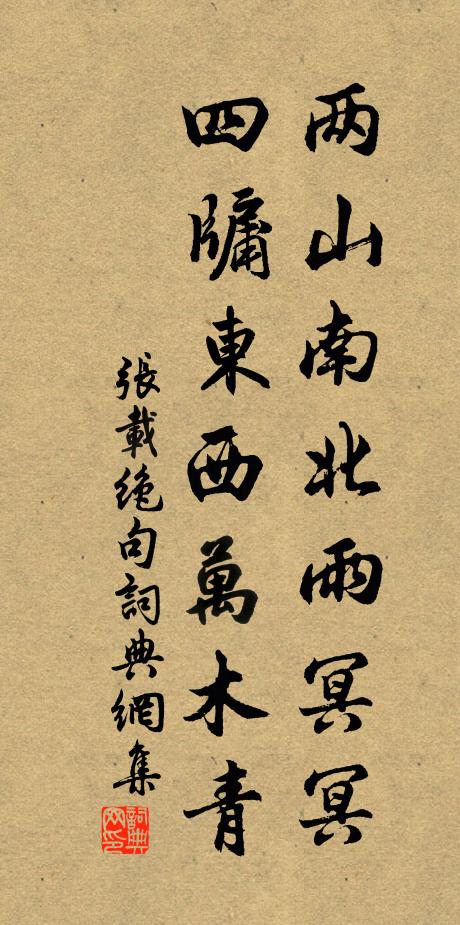 两山南北雨冥冥
四牖東西萬木青
張載絶句詞典網集
詞典网印